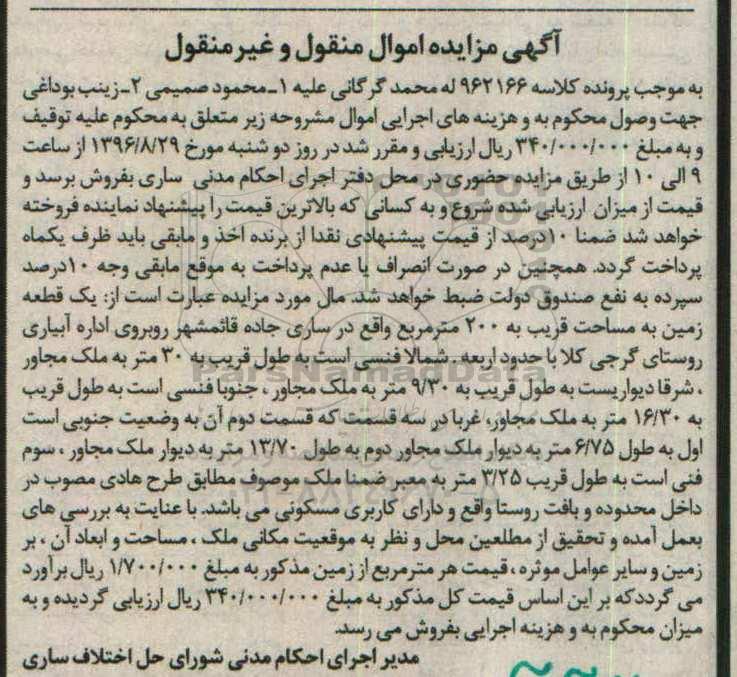 آگهی مزایده اموال منقول و غیر منقول
به موجب پرونده کلاسه ۹۶۲۱۶۶ له محمد گرگانی علیه ۱ـ محمود صمیمی ۲ـ زینب بوداغی
جهت وصول محکوم به و هزینه های اجرایی اموال مشروحه زیر متعلق به محکوم علیه توقیف
و به مبلغ ۳۴۰/۰۰۰/۰۰۰ ریال ارزیابی و مقرر شد در روز دو شنبه مورخ ۱۳۹۶/۸/۲۹ از ساعت
۹ الی ۱۰ از طریق مزایده حضوری در محل دفتر اجرای احکام مدنی ساری بفروش برسد و
قیمت از میزان ارزیابی شده شروع و به کسانی که بالاترین قیمت را پیشنهاد نماینده فروخته
خواهد شد ضمنا ۱۰درصد از قیمت پیشنهادی نقدا از برنده اخذ و مابقی باید ظرف یکماه
پرداخت گردد. همچنین در صورت انصراف یا عدم پرداخت به موقع مابقی وجه ۱۰درصد
سپرده به نفع صندوق دولت ضبط خواهد شد. مال مورد مزایده عبارت است از: یک قطعه
زمین به مساحت قریب به ۲۰۰ مترمربع واقع در ساری جاده قائمشهر روبروی اداره آبیاری
روستای گرجی کلا با حدود اربعه . شمالا فنسی است به طول قریب به ۳۰ متر به ملک مجاور
، شرقا دیواریست به طول قریب به ۹/۳۰ متر به ملک مجاور ، جنوبا فنسی است به طول قریب
به ۱۶/۳۰ متر به ملک مجاور، غربا در سه قسمت که قسمت دوم آن به وضعیت جنوبی است
اول به طول ۶/۷۵ متر به دیوار ملک مجاور دوم به طول ۱۳/۷۰ متر به دیوار ملک مجاور ، سوم
فنی است به طول قریب ۳/۲۵ متر به معبر ضمنا ملک موصوف مطابق طرح هادی مصوب در
داخل محدوده و بافت روستا واقع و دارای کاربری مسکونی می باشد. با عنایت به بررسی های
بعمل آمده و تحقیق از مطلعین محل و نظر به موقعیت مکانی ملک ، مساحت و ابعاد آن ، بر
زمین و سایر عوامل موثره ، قیمت هر مترمربع از زمین مذکور به مبلغ ۱/۷۰۰/۰۰۰ ریال برآورد
می گردد که بر این اساس قیمت کل مذکور به مبلغ ۳۴۰/۰۰۰/۰۰۰ ریال ارزیابی گردیده و به
میزان محکوم به و هزینه اجرایی بفروش می رسد.
مدیر اجرای احکام مدنی شورای حل اختلاف ساری
ParsNamadData